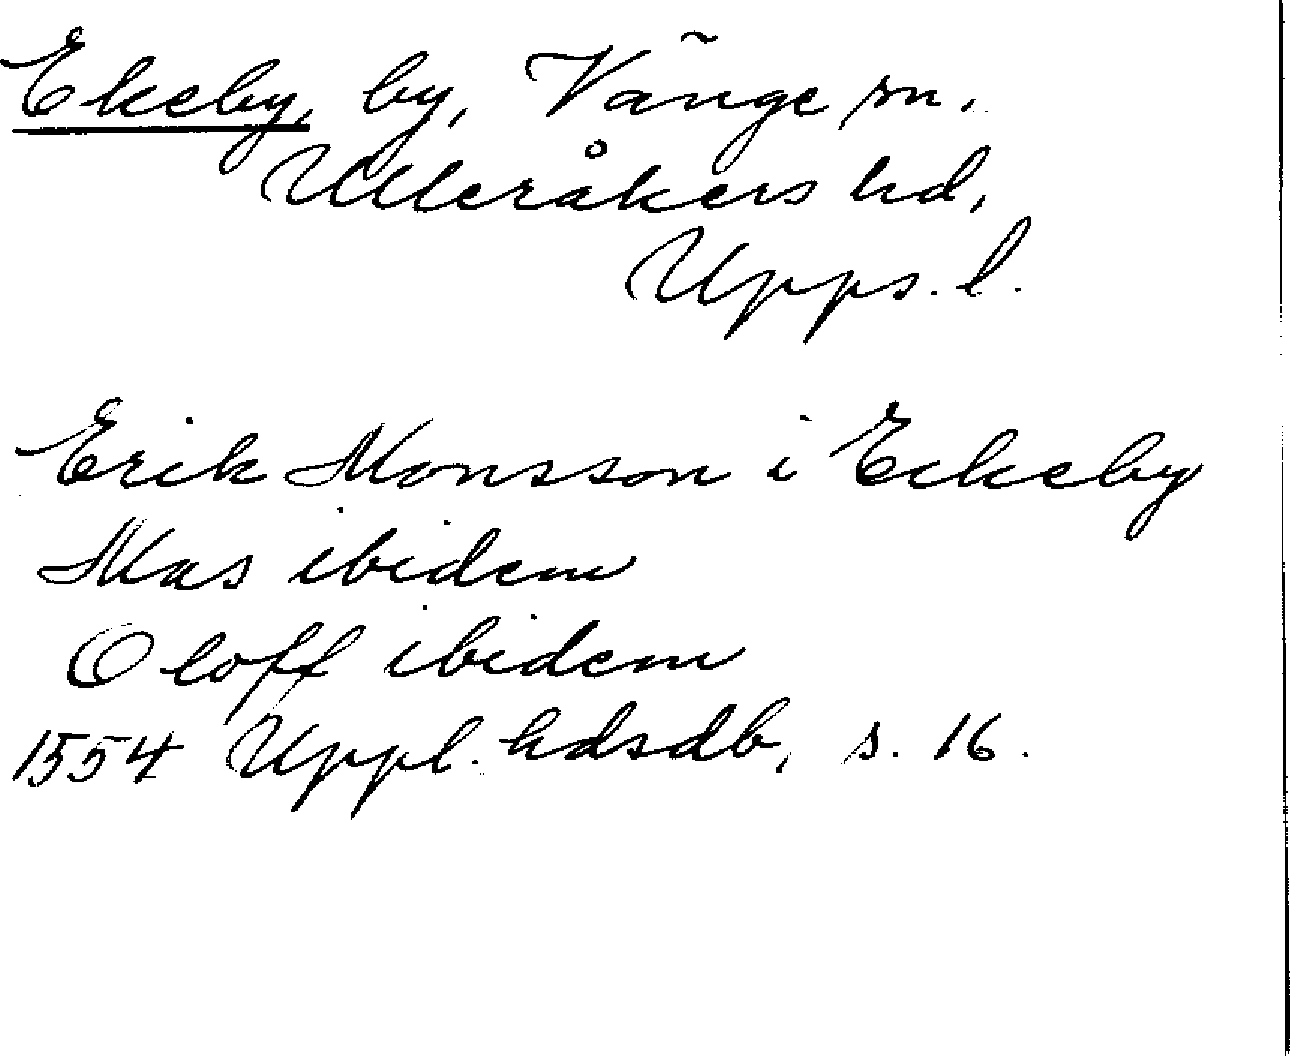 Ekeby, by, Vänge sn.
Ulleråkers hd,
Upps. l.
Erik Monsson i Eckeby
Mas ibidem
Oloff ibidem
1554 Uppl. hdsdb, s. 16.